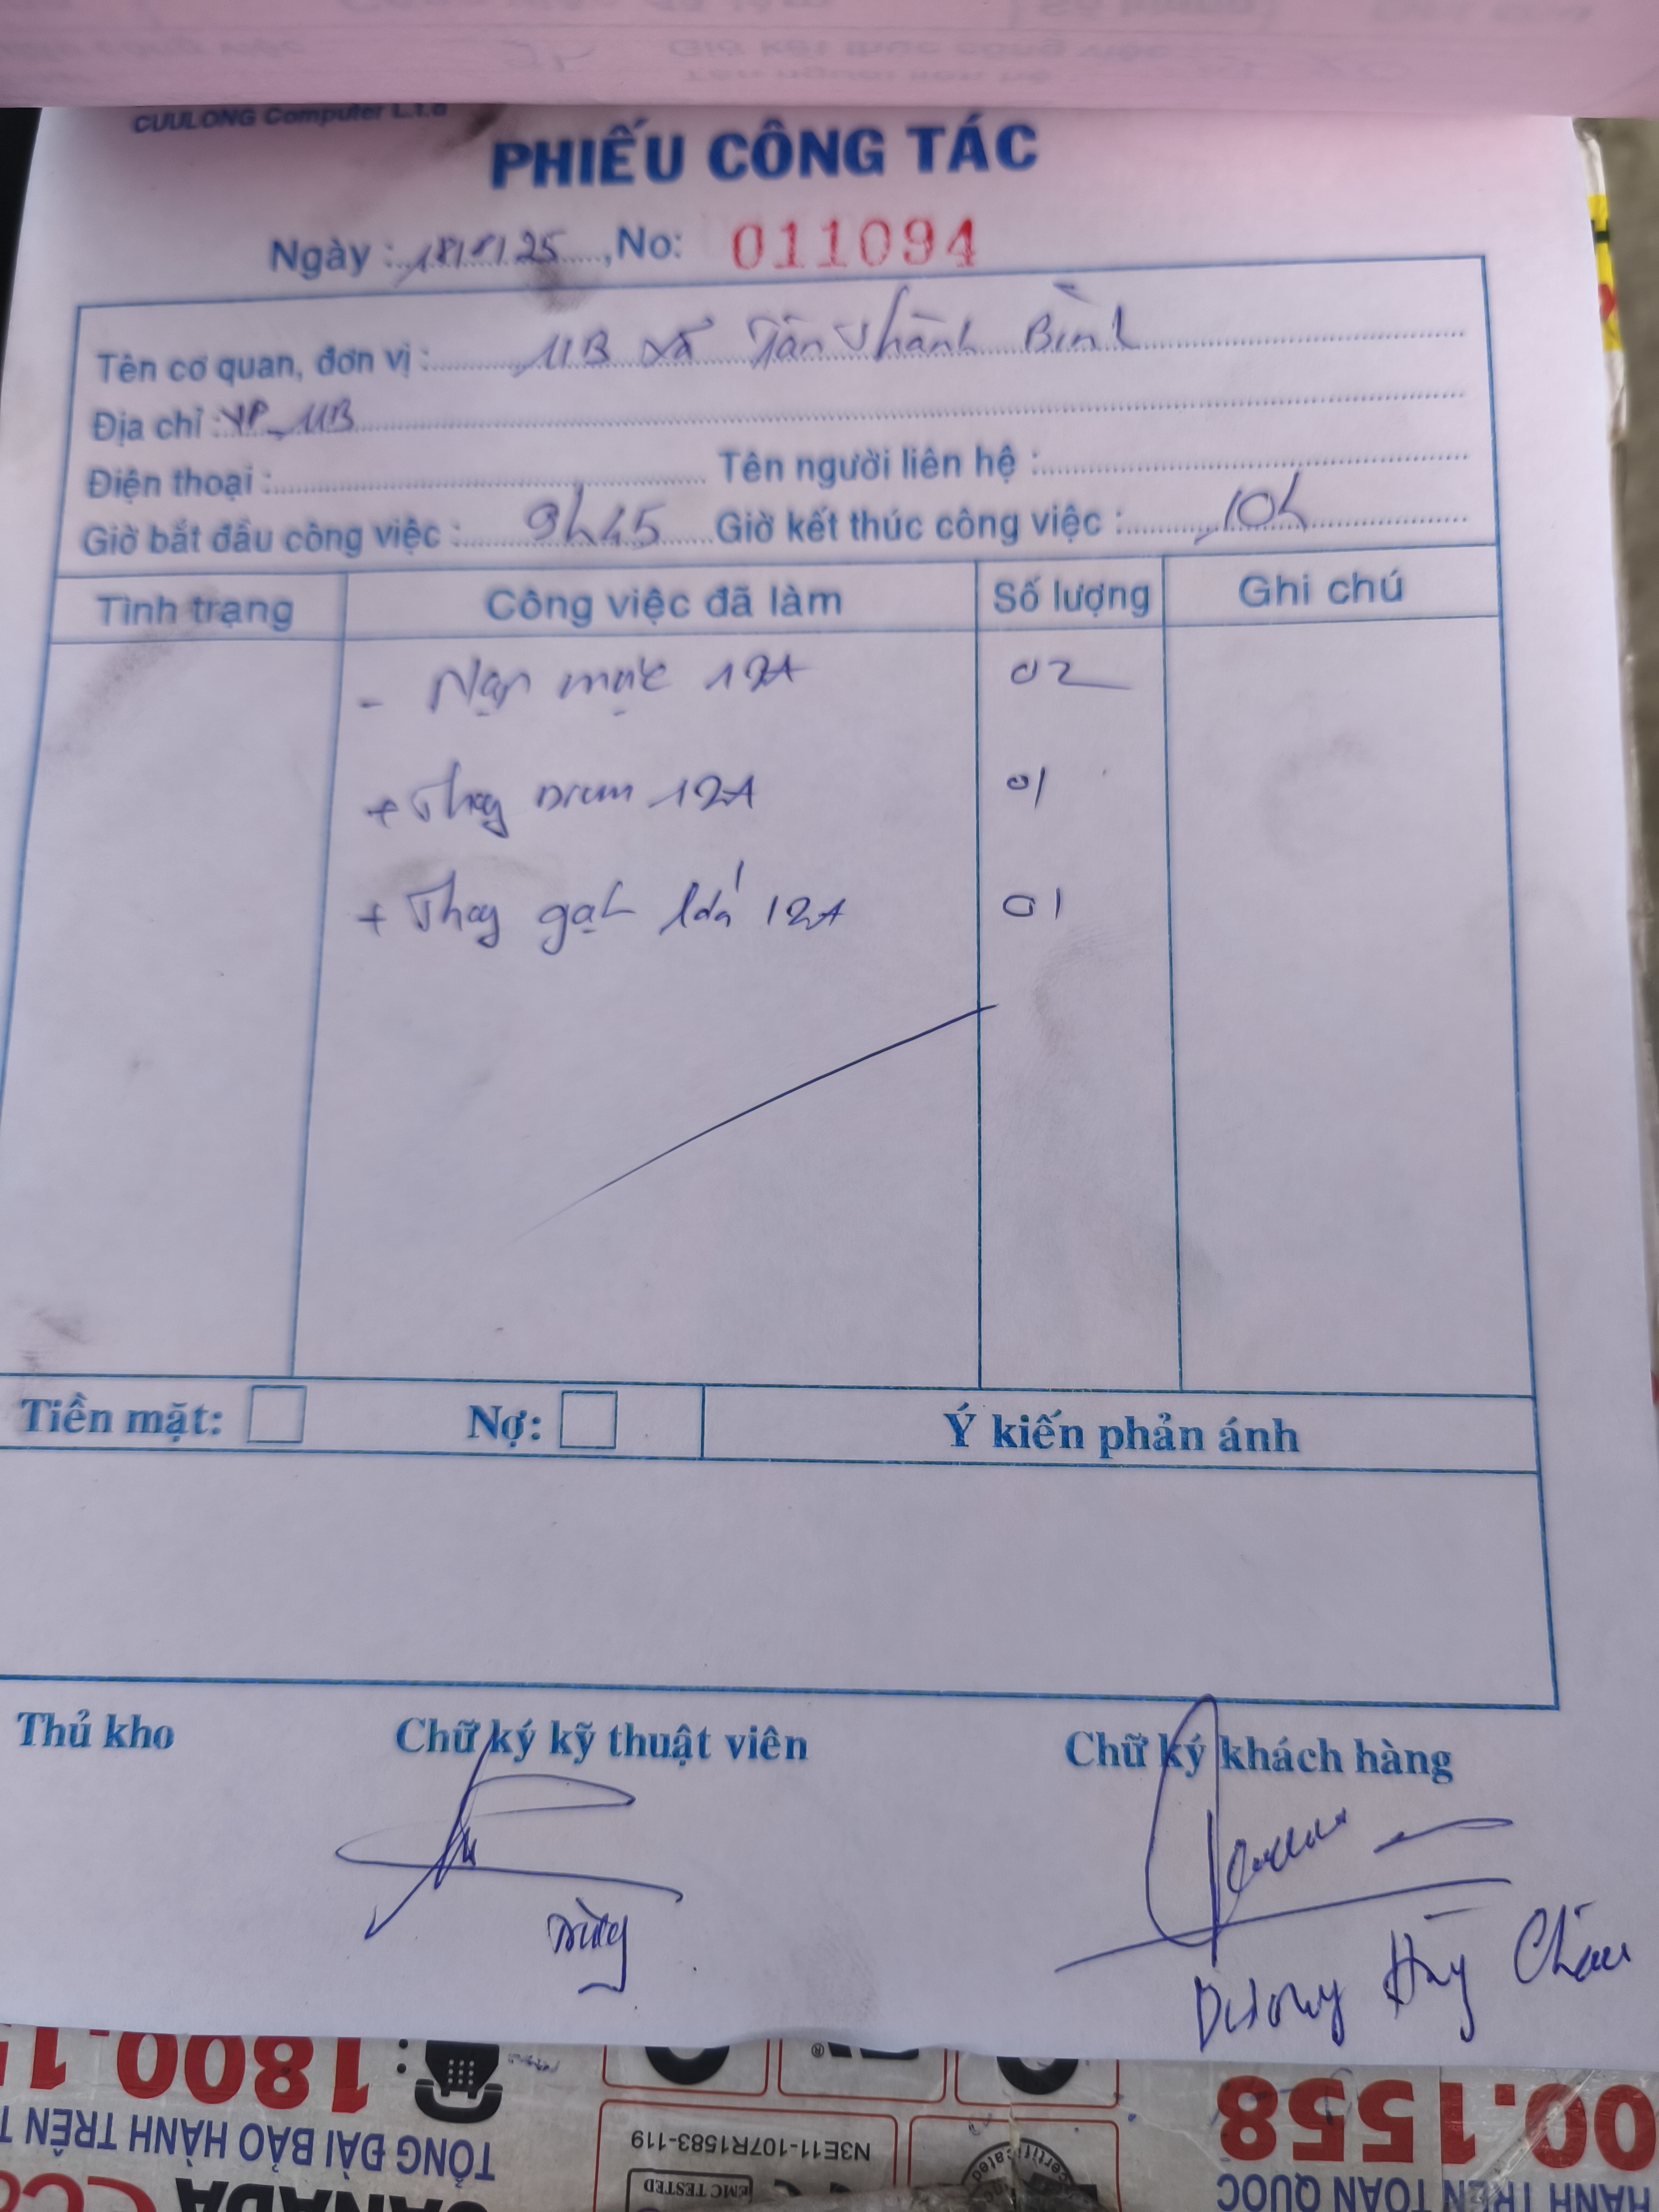 CUULONG Computer L.t.d
PHIẾU CÔNG TÁC
Ngày : 18/8/25, No: 011094
Tên cơ quan, đơn vị : UB xã Tân Thành Bình
Địa chỉ : VP_UB
Điện thoại : Tên người liên hệ :
Giờ bắt đầu công việc : 9h45 Giờ kết thúc công việc : 10h
Tình trạng Công việc đã làm Số lượng Ghi chú
- Nạp mực 12A 02
+ Thay Drum 12A 01
+ Thay gạt lớn 12A 01
Tiền mặt: Nợ: Ý kiến phản ánh
Thủ kho Chữ ký kỹ thuật viên Chữ ký khách hàng
Dương Hùy Châu
1800.1
00.1558
TỔNG ĐÀI BẢO HÀNH TRÊN T
HÀNH TRÊN TOÀN QUỐC
N3E11-107R1583-119
EMC TESTED